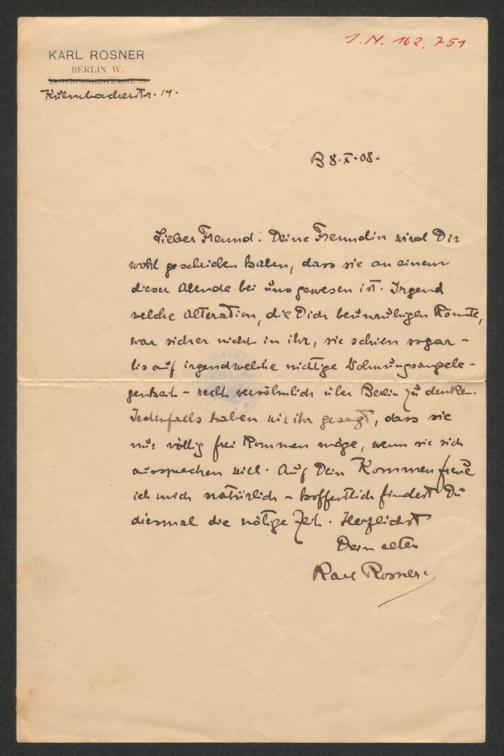 KARL ROSNER
BERLIN W.
Kulmbacherstr. 14.
I.N. 162.751
B 8.X.08.
Lieber Freund! Deine Freundin wird Dir
wohl geschrieben haben, dass sie an einem
dieser Abende bei uns gewesen ist. Irgend
welche Alteration, die Dich beunruhigen könnte,
war sicher nicht in ihr, sie schien sogar –
bis auf irgendwelche nichtige Wohnungsangele-
genheit – recht versöhnlich über Berlin zu denken.
Jedenfalls haben wir ihr gesagt, dass sie
nur völlig frei kommen möge, wenn sie sich
aussprechen will. Auf Dein Kommen freue
ich mich natürlich – hoffentlich findest Du
diesmal die nötige Zeit. Herzlichst
Dein alter
Karl Rosner.